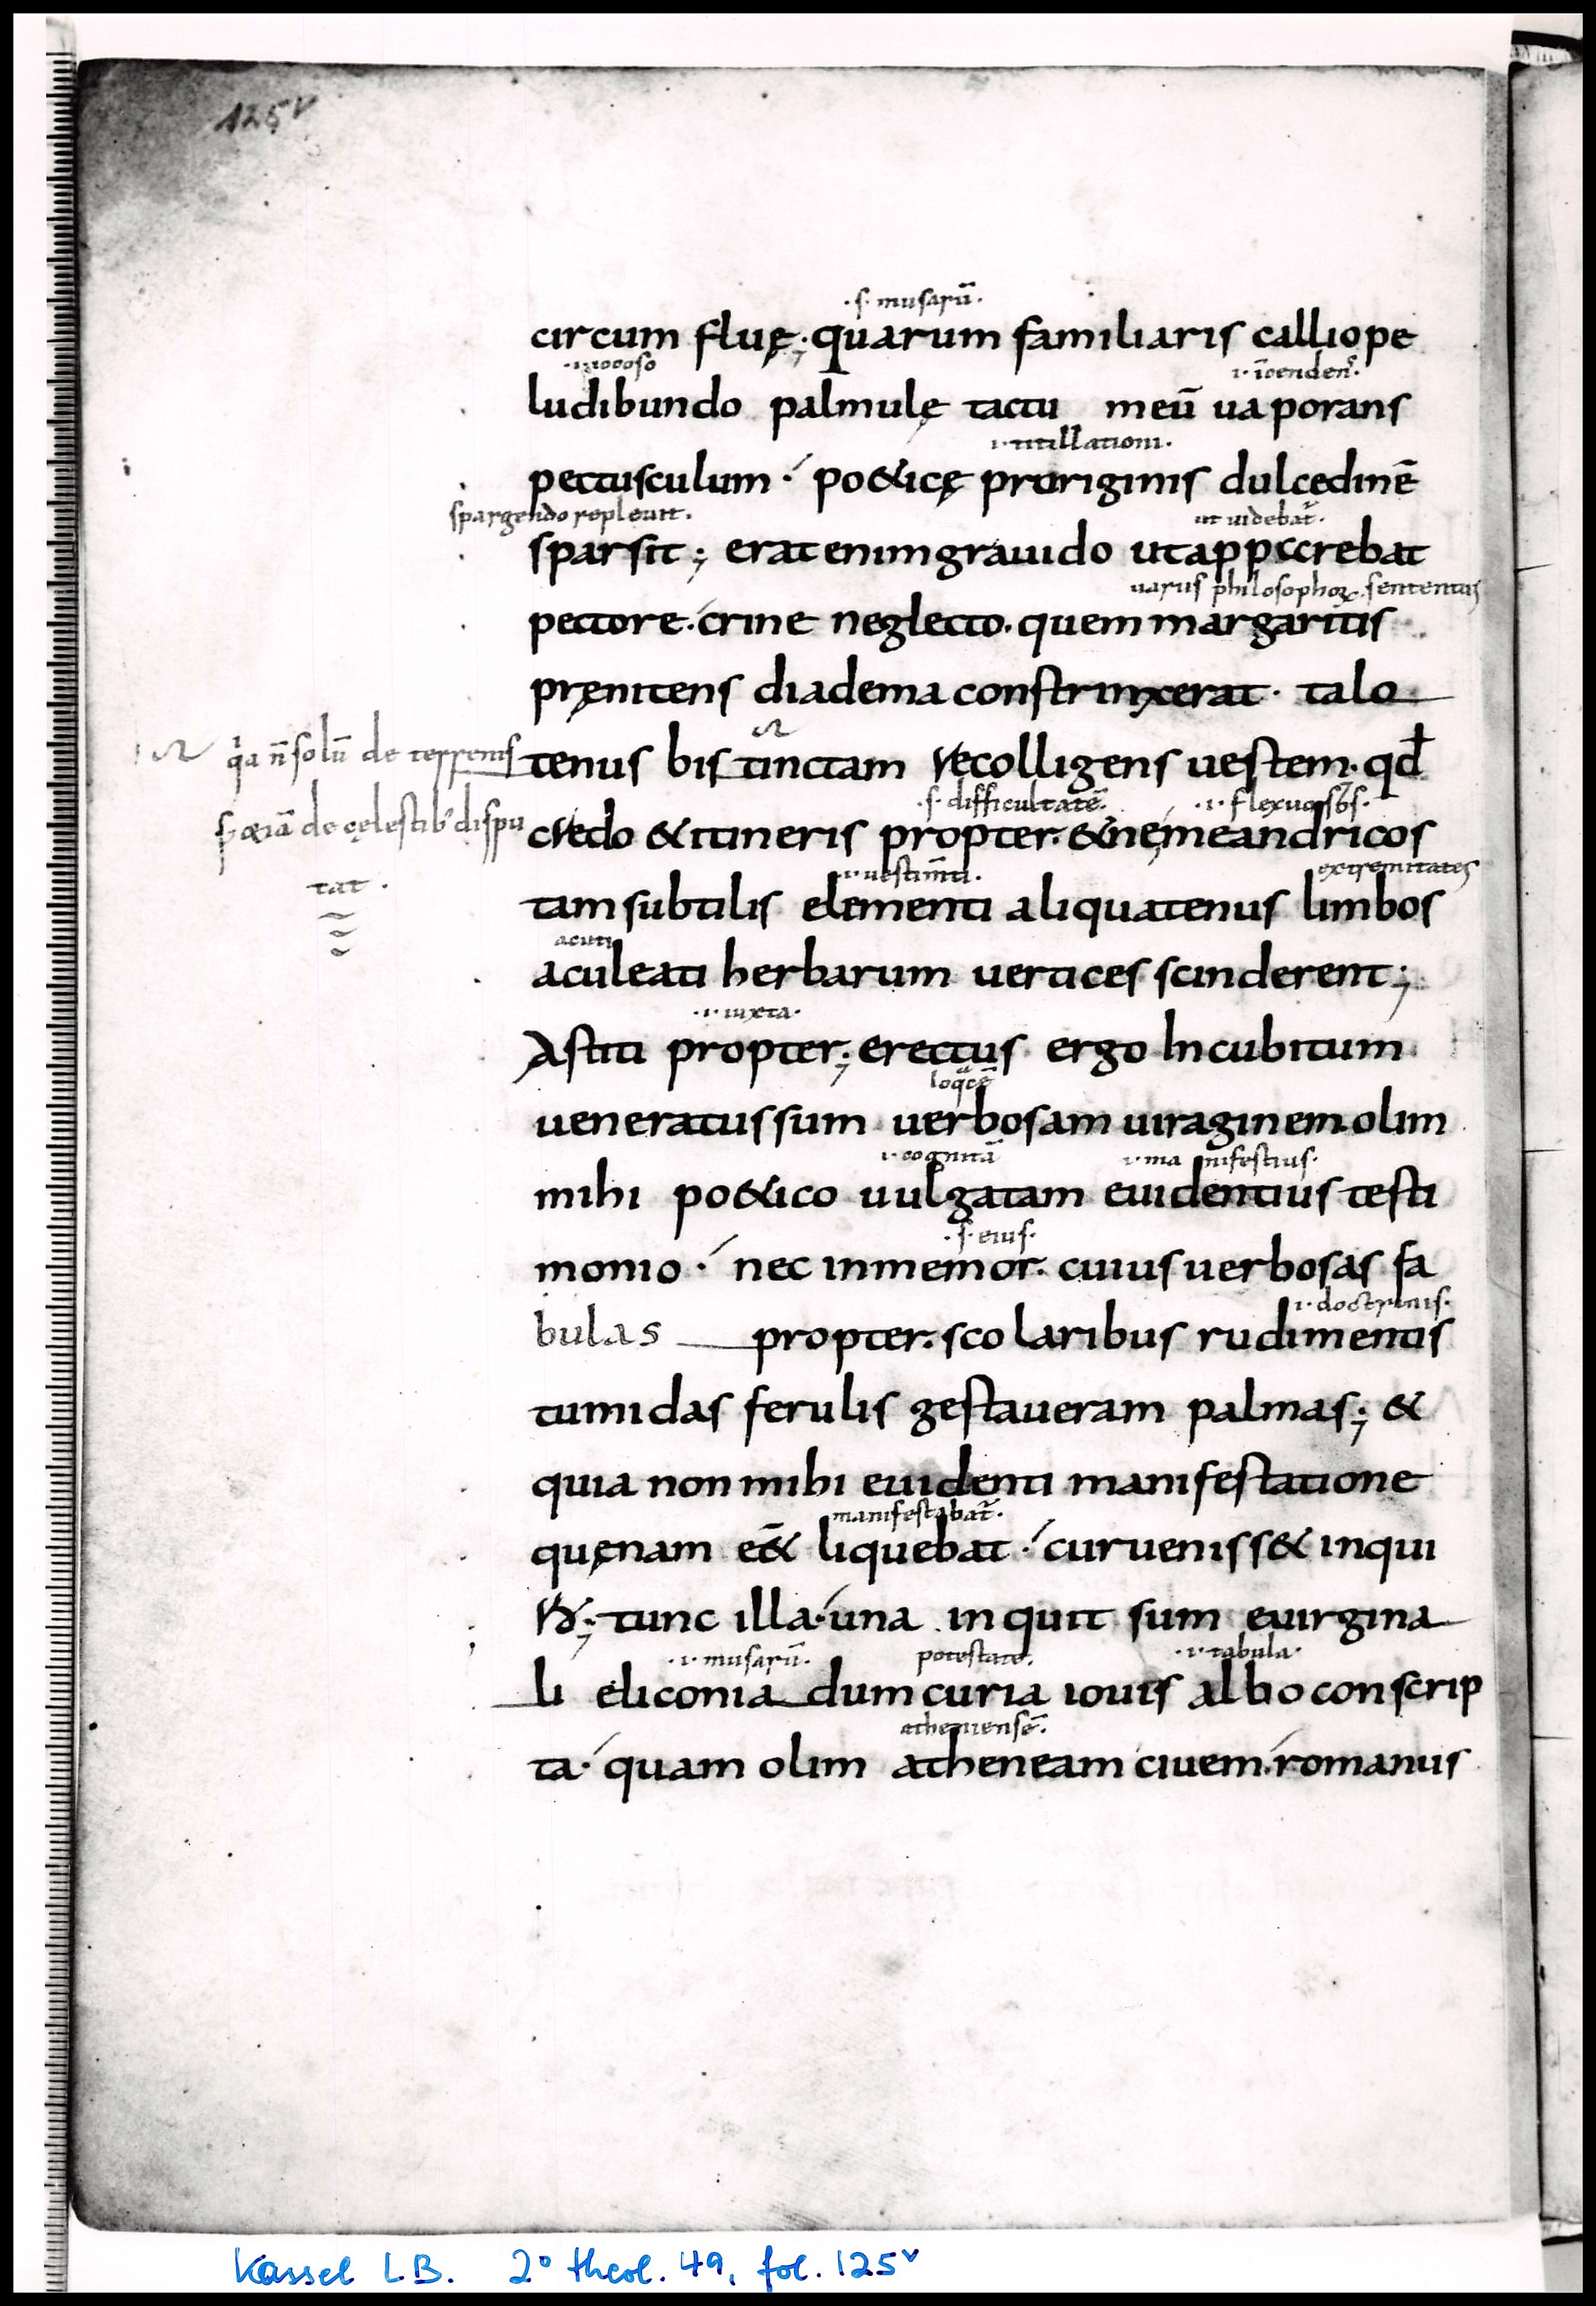 125v
·s· musarū·
circum fluę; quarum familiaris calliope
·i· iocoso
i· īcendens·
ludibundo palmulę tactu meū uaporans
i· titillationi·
pectusculum· po&icę pruriginis dulcedinē
spargendo repleuit.
ut uidebat̄·
sparsit; erat enim grauido ut apparebat
uariis philosophoꝝ sententiis
pectore· crine neglecto· quem margaritis
pręnitens diadema constrinxerat· talo
qa n̄ solū de terrenis
tenus bis tinctam recolligens uestem· qđ
·s· difficultatē·
·i· flexuosos·
s; &iā de cęlestib; dispu
credo & itineris propter· & ne meandricos
·i· uestim̄ti·
extremitates
tat·
tam subtilis elementi aliquatenus limbos
acuti
aculeati herbarum uertices scinderent;
·i· iuxta·
Astiti propter; erectus ergo In cubitum
loqcē
ueneratus sum uerbosam uiraginem olim
i· cognitā
i· manifestius·
mihi po&ico uulgatam euidentius testi
·s· eius·
monio· nec inmemor· cuius uerbosas fa
i· doctrinis·
bulas propter· scolaribus rudimentis
tumidas ferulis gestaueram palmas; &
quia non mihi euidenti manifestatione
manifestabat̄·
quęnam eē& liquebat· cur ueniss& inqui
r&; tunc illa· una inquit sum e uirgina
·i· musarū·
potestate·
·i· tabula·
li eliconiadum curia iouis albo conscrip
atheniensē·
ta· quam olim atheneam ciuem· romanus
Kassel LB. 2° theol. 49, fol. 125v